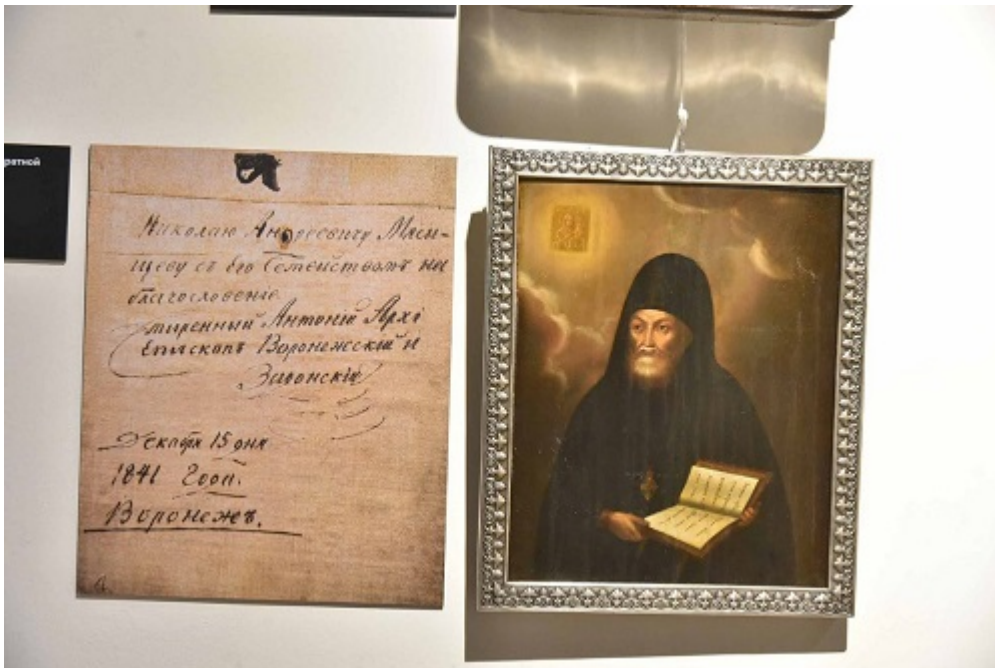 ратной
Николаю Андреевичу Мяси-
щеву съ его Семействомъ на
благословение
смиренный Антоний Архі
Епископъ Воронежскій и
Задонскій
Декабря 15 дня
1841 Года.
Воронежъ.